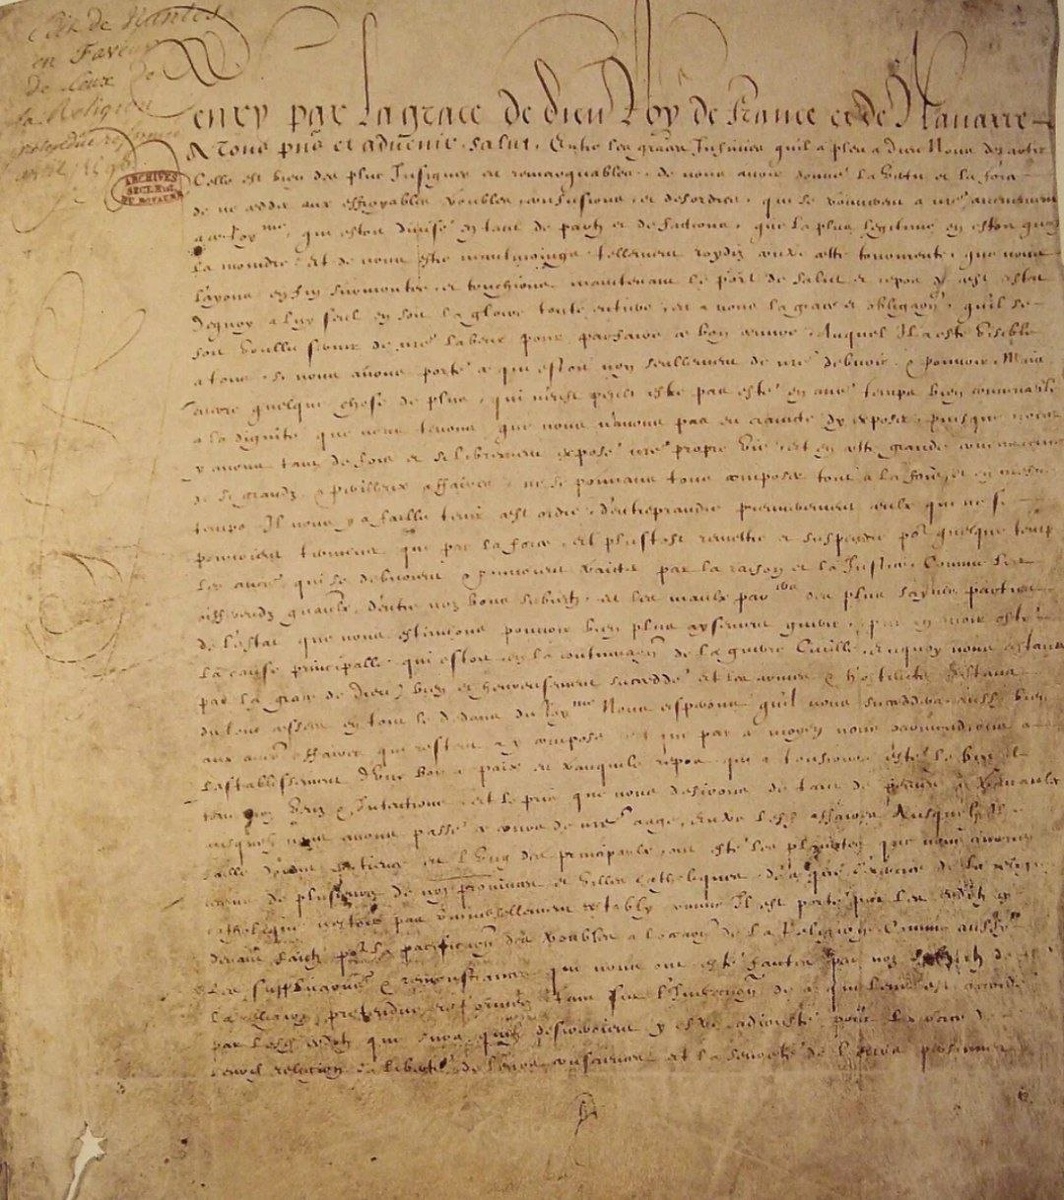 Edit de Nantes
en Faveur
de Ceux de
la Religion
ARCHIVES
SECT. HIST.
DU ROYAUME
Henry par la grace de dieu Roy de France et de Navarre
A Tous pñs et adũenir. Salut. Entre les graces Infinies qu'il a pleu a Dieu Nous departir
Celle est bien des plus Insignes et remarquables. de nous avoir donné la vertu et la force
de ne cedder aux effroyables troubles confusions et desordres. qui se trouverent a nre advenement
a ce Roy.me, qui estoit divisé en tant de partz et de factions. que la plus legitime en estoit quasi
la moindre. et de nous estre neantmoings tellement roydiz contre ceste tourmente. que nous
l'ayons enfin surmontée. et touchions maintenant le port de salut et repos de cest estat
Dequoy a luy seul en soit la gloire toute entiere. et a nous la grace et obligaõn. qu'il se
soit voullu servir de nre labeur pour parfaire ce bon œuvre. Auquel Il a esté visible
a tous. si nous avons porté ce qui estoit non seullement de nre debvoir. & pouvoir. Mais
quelque chose de plus. qui n'eust peult estre pas esté en autre temps bien convenable
a la dignité que nous tenons. que nous n'avons pas eu craincte d'y exposer. puisque nous
y avons tant de fois et si librement exposé nre propre vie. Et en ceste grande concurrence
de si grandz & perilleux affaires. ne se pouvans tous composer tout a la fois, et en mesme
temps Il nous y a faillu tenir cest ordre. d'entreprendre premierement ceulx qui ne se
pouvoient terminer que par la force. et plustost remettre et suspendre po.r quelque temps
les autres qui se debvoient & pouvoient traicter par la raison et la Justice. Comme les
differendz generaulx d'entre noz bons subiectz. et les maulx par.ers des plus saynes parties
de l'estat que nous estimions pouvoir bien plus aysement guerir. apres en avoir osté
la cause principalle. qui estoit en la continuaõn de la guerre Civille. Enquoy nous estans
par la grace de Dieu) bien et heureusement succeddé. et les armes & hostilitez estans
du tout cessees en tout le dedans du Roy.me Nous esperons qu'il nous succeddera aussi bien
aux autres affaires qui restent a y composer. et que par ce moyen nous parviendrons a
l'establissement d'une bonne paix et tranquille repos. qui a tousiours esté le but de
tous noz veuz & Intentions. et le prix que nous desirons de tant de peines & travaulx
ausquelz nous avons passé ce cours de nre aage. Entre lesd affaires Ausquelz Il
a fallu donner patience et l'ung des principaulx. ont esté les plainctes que nous avons
receues de plusieurs de noz provinces et villes catholiques. de ce que l'exercice de la religion
catholique n'estoit pas universellement restably. comme Il est porté par les edictz cy
devant faictz po.r la pacificaõn des troubles a l'occaõn de la Religion. Comme aussy
les suppli.caõns & remonstrances qui nous ont esté faictes par noz subiectz de
la religion pretendue reformée. tant sur l'Inexecuõn de ce qui leur est accordé
par lesd edictz que sur ce qu'ilz desireroient y estre adiousté pour l'exercice de
leurd religion la liberté de leurs consciences et la seureté de leurs personnes